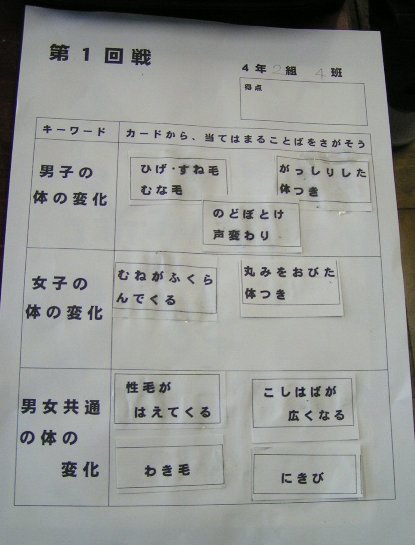 第1回戦
4年2組 4班
得点
キーワード カードから、当てはまることばをさがそう
男子の
体の変化
ひげ・すね毛
むな毛
がっしりした
体つき
のどぼとけ
声変わり
女子の
体の変化
むねがふくら
んでくる
丸みをおびた
体つき
男女共通
の体の
変化
性毛が
はえてくる
こしはばが
広くなる
わき毛
にきび